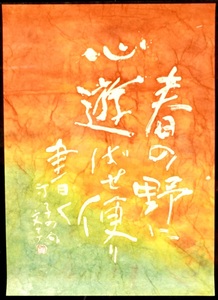 春の野に
心遊ばせ便り
書く